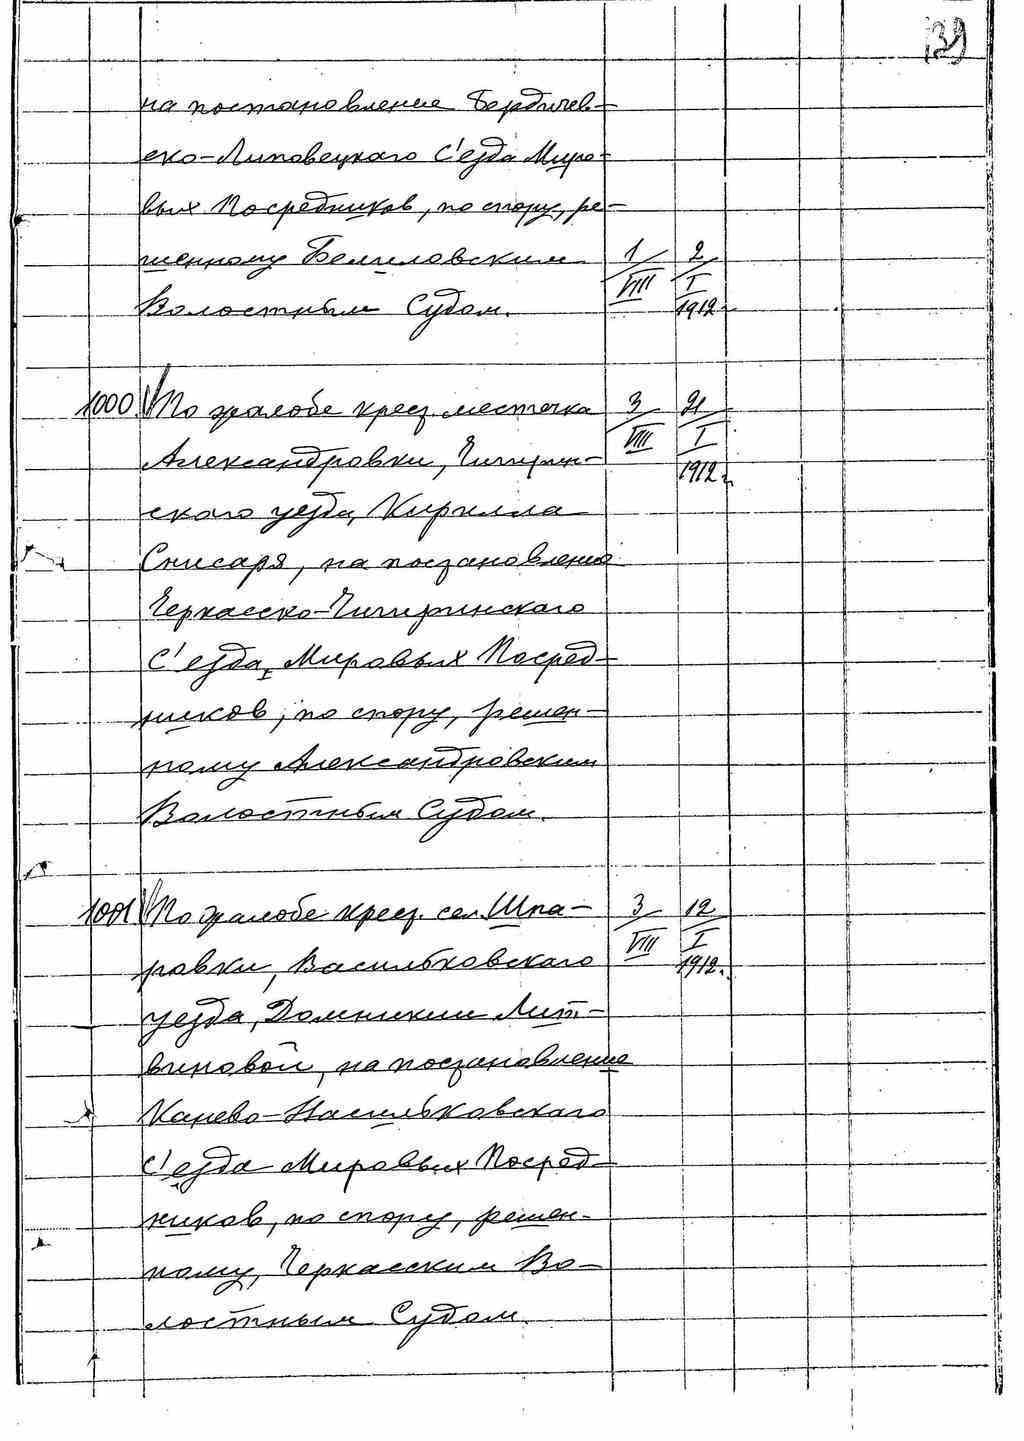 139
на постановление Бердичев-
ско-Липовецкаго С'езда Миро-
вых Посредников, по спору, ре-
шенному Белиловским 1/VIII 2/I
Волостным Судом. 1912 г.
1000. По жалобе крест. местечка 3/VIII 21/I
Александровки, Чигирин- 1912 г.
скаго уезда, Кирилла
Снисаря, на постановление
Черкасско-Чигиринскаго
С'езда, Мировых Посред-
ников, по спору, решен-
ному Александровским
Волостным Судом.
1001. По жалобе крест. сел. Шпа- 3/VIII 12/I
ровки, Васильковскаго 1912 г.
уезда, Домникии Лит-
виновой, на постановление
Канево-Насильковскаго
С'езда Мировых Посред-
ников, по спору, решен-
ному, Черкасским Во-
лостным Судом.